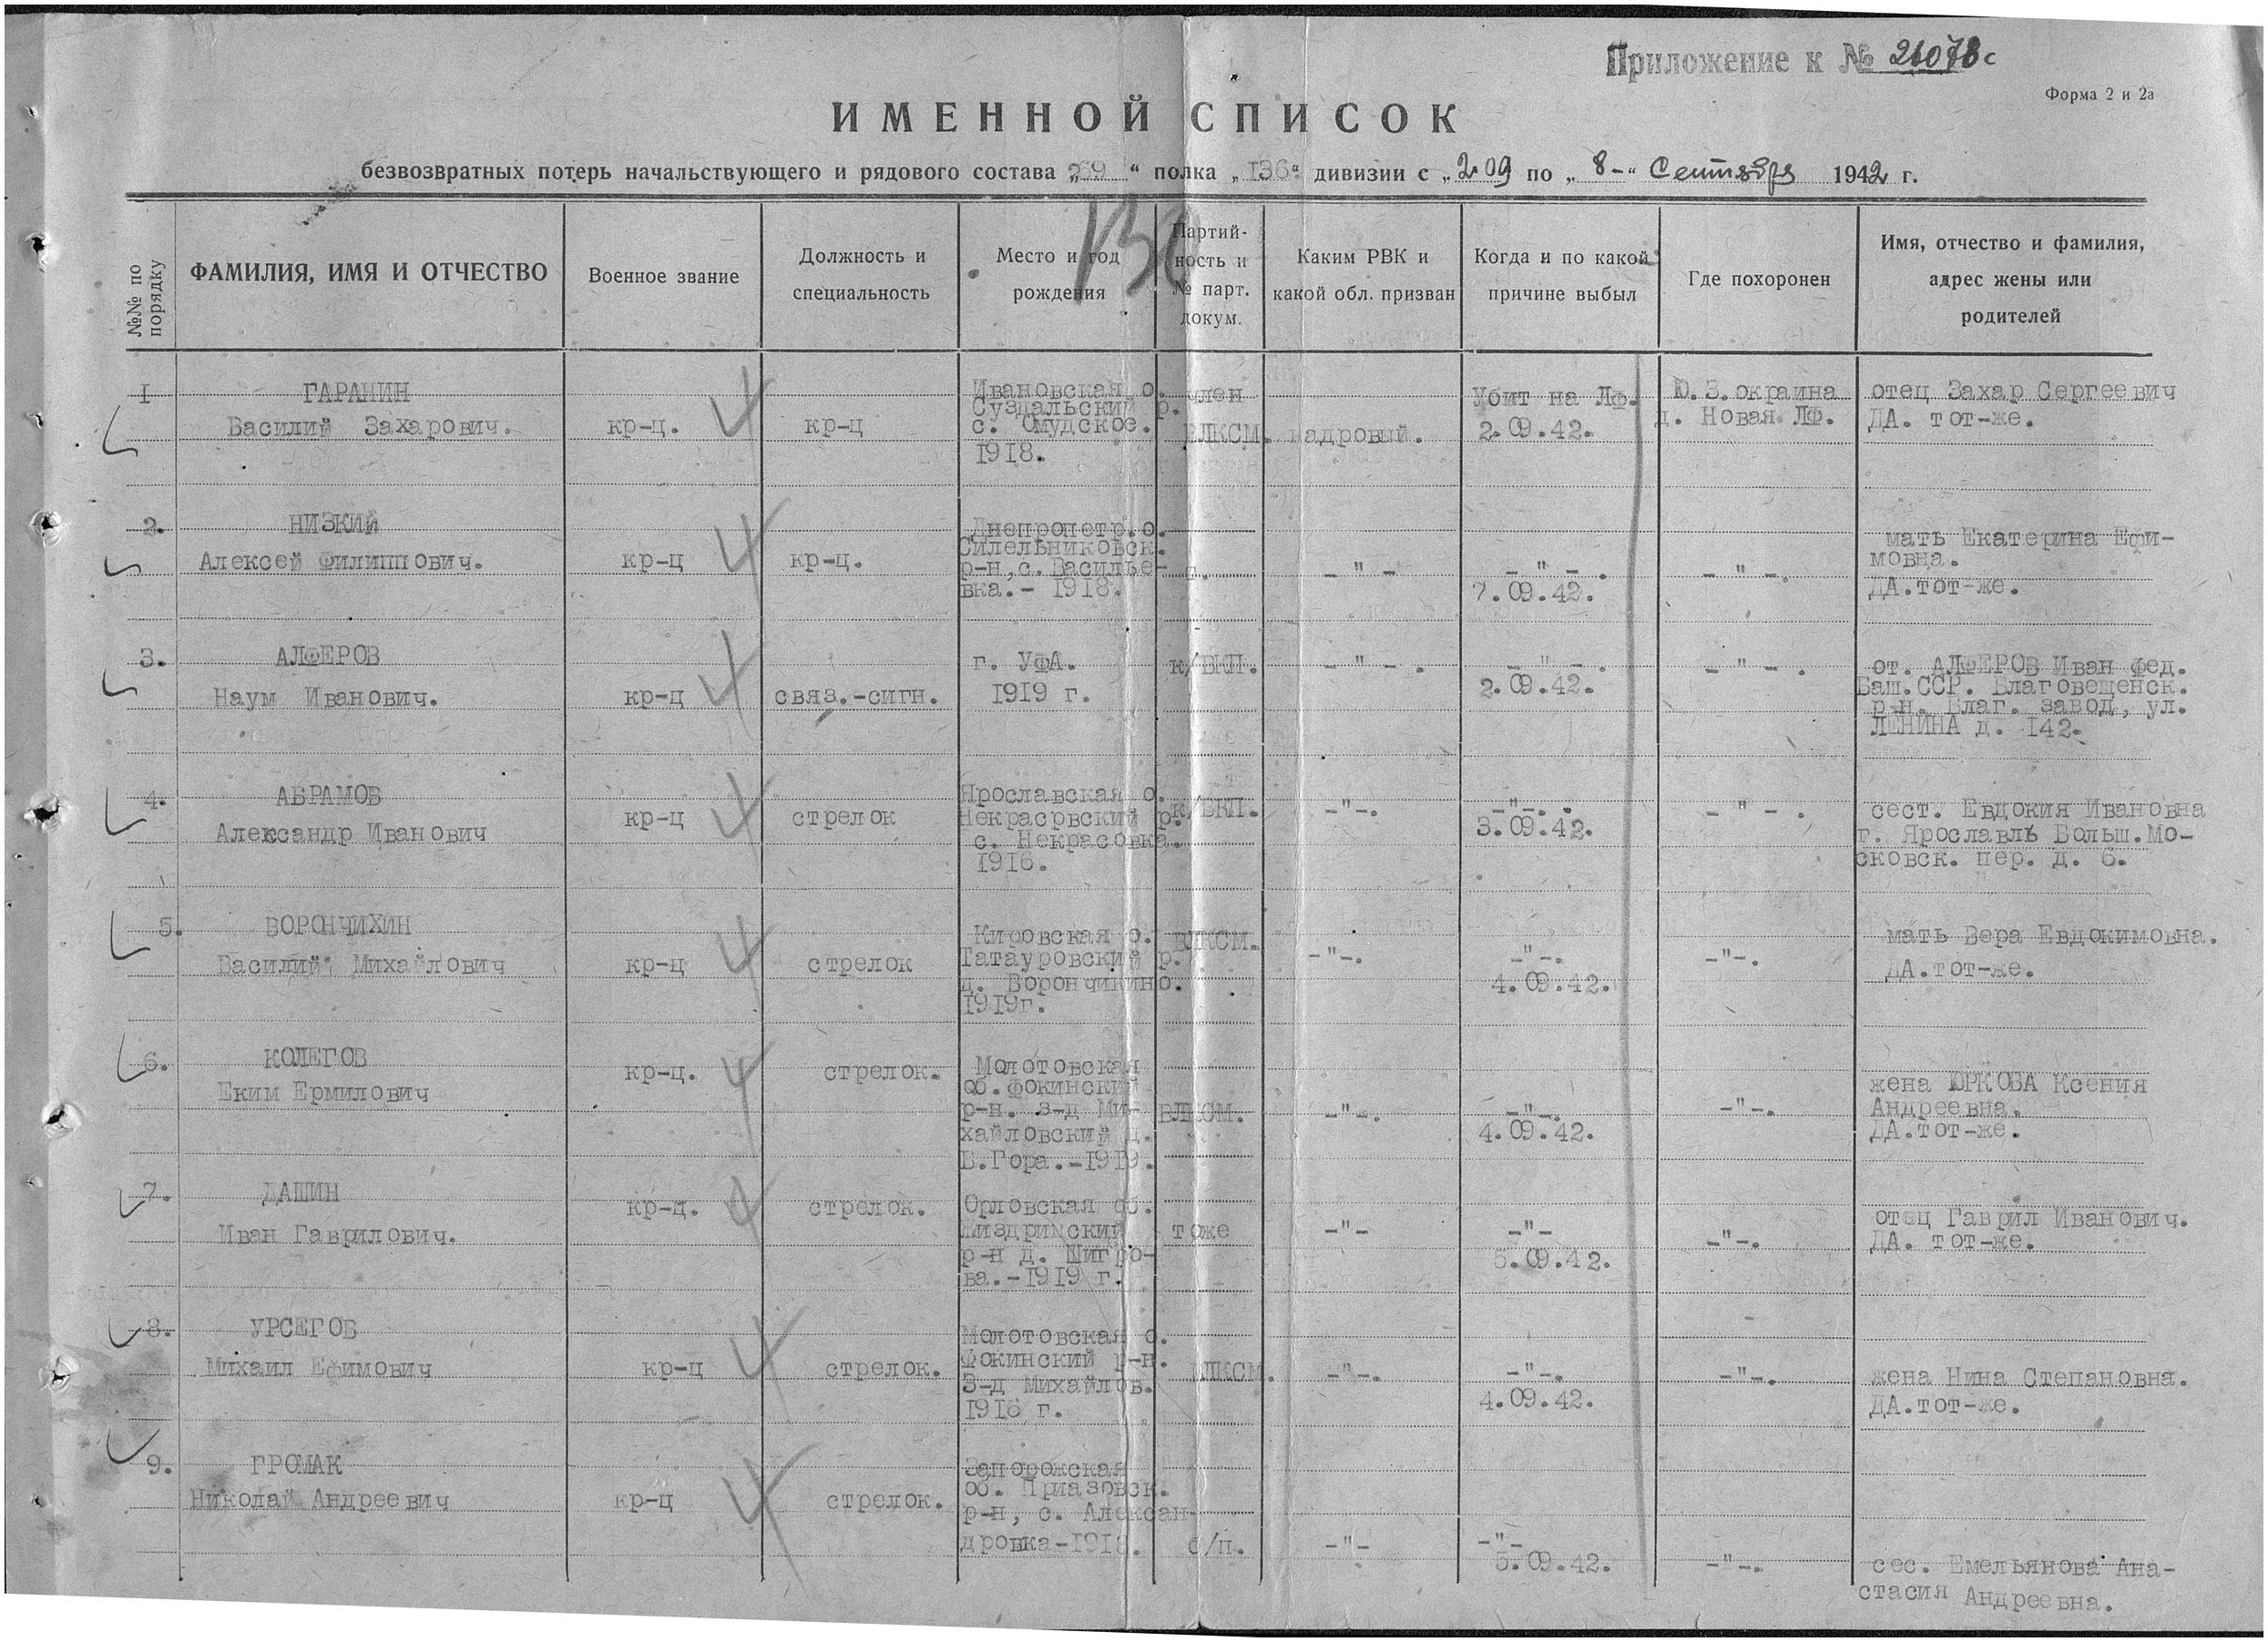 Приложение к № 21078с
Форма 2 и 2а
ИМЕННОЙ СПИСОК
безвозвратных потерь начальствующего и рядового состава „269“ полка „136“ дивизии с „2 09 по „8-“ Сентября 1942 г.
№№ по порядку
ФАМИЛИЯ, ИМЯ И ОТЧЕСТВО
Военное звание
Должность и
специальность
Место и год
рождения
Партий-
ность и
№ парт.
докум.
Каким РВК и
какой обл. призван
Когда и по какой
причине выбыл
Где похоронен
Имя, отчество и фамилия,
адрес жены или
родителей
1
ГАРАНИН
Василий Захарович.
кр-ц.
кр-ц
Ивановская о.
Суздальский р.
с. Омудское.
1918.
член
ВЛКСМ.
кадровый.
Убит на Лф.
2.09.42.
Ю.З.окраина
д. Новая Лф.
отец Захар Сергеевич
ДА. тот-же.
2.
НИЗКИЙ
Алексей Филиппович.
кр-ц
кр-ц.
Днепропетр.о.
Силельниковск.
р-н,с.Василье-
вка.- 1918.
-"-
-"-.
7.09.42.
-"-.
мать Екатерина Ефи-
мовна.
ДА.тот-же.
3.
АЛФЕРОВ
Наум Иванович.
кр-ц
связ.-сигн.
г. УФА.
1919 г.
к/ВКП.
-"-.
-"-.
2.09.42.
-"-.
от. АЛФЕРОВ Иван Фед.
Баш.ССР. Благовещенск.
р-н. Благ. завод, ул.
ЛЕНИНА д. 142.
4.
АБРАМОВ
Александр Иванович
кр-ц
стрелок
Ярославская о.
Некрасрвский р.
с. Некрасовка.
1916.
к/ВКП.
-"-.
-"-.
3.09.42.
-"-.
сест. Евдокия Ивановна
г. Ярославль Больш.Мо-
сковск. пер. д. 6.
5.
ВОРОНЧИХИН
Василий Михайлович
кр-ц
стрелок
Кировская о.
Татауровский р.
д. Ворончикино.
1919г.
ВЛКСМ.
-"-.
-"-.
4.09.42.
-"-.
мать Вера Евдокимовна.
ДА.тот-же.
6.
КОЛЕГОВ
Еким Ермилович
кр-ц.
стрелок.
Молотовская
об.Фокинский
р-н. з-д Ми-
хайловский д.
Б.Гора.-1919.
ВЛКСМ.
-"-.
-"-.
4.09.42.
-"-.
жена ЮРКОВА Ксения
Андреевна.
ДА.тот-же.
7.
ДАШИН
Иван Гаврилович.
кр-ц.
стрелок.
Орловская об.
Жиздринский
р-н д. Шигро-
ва.-1919 г.
тоже
-"-
-"-
5.09.42.
-"-.
отец Гаврил Иванович.
ДА. тот-же.
8.
УРСЕГОВ
Михаил Ефимович
кр-ц
стрелок.
Молотовская о.
Фокинский р-н.
З-д Михайлов.
1916 г.
ВЛКСМ.
-"-.
-"-.
4.09.42.
-"-.
жена Нина Степановна.
ДА.тот-же.
9.
ГРОМАК
Николай Андреевич
кр-ц
стрелок.
Запорожская
об. Приазовск.
р-н, с. Алексан
дровка-1918.
б/п.
-"-
-"-
5.09.42.
-"-.
сес. Емельянова Ана-
стасия Андреевна.